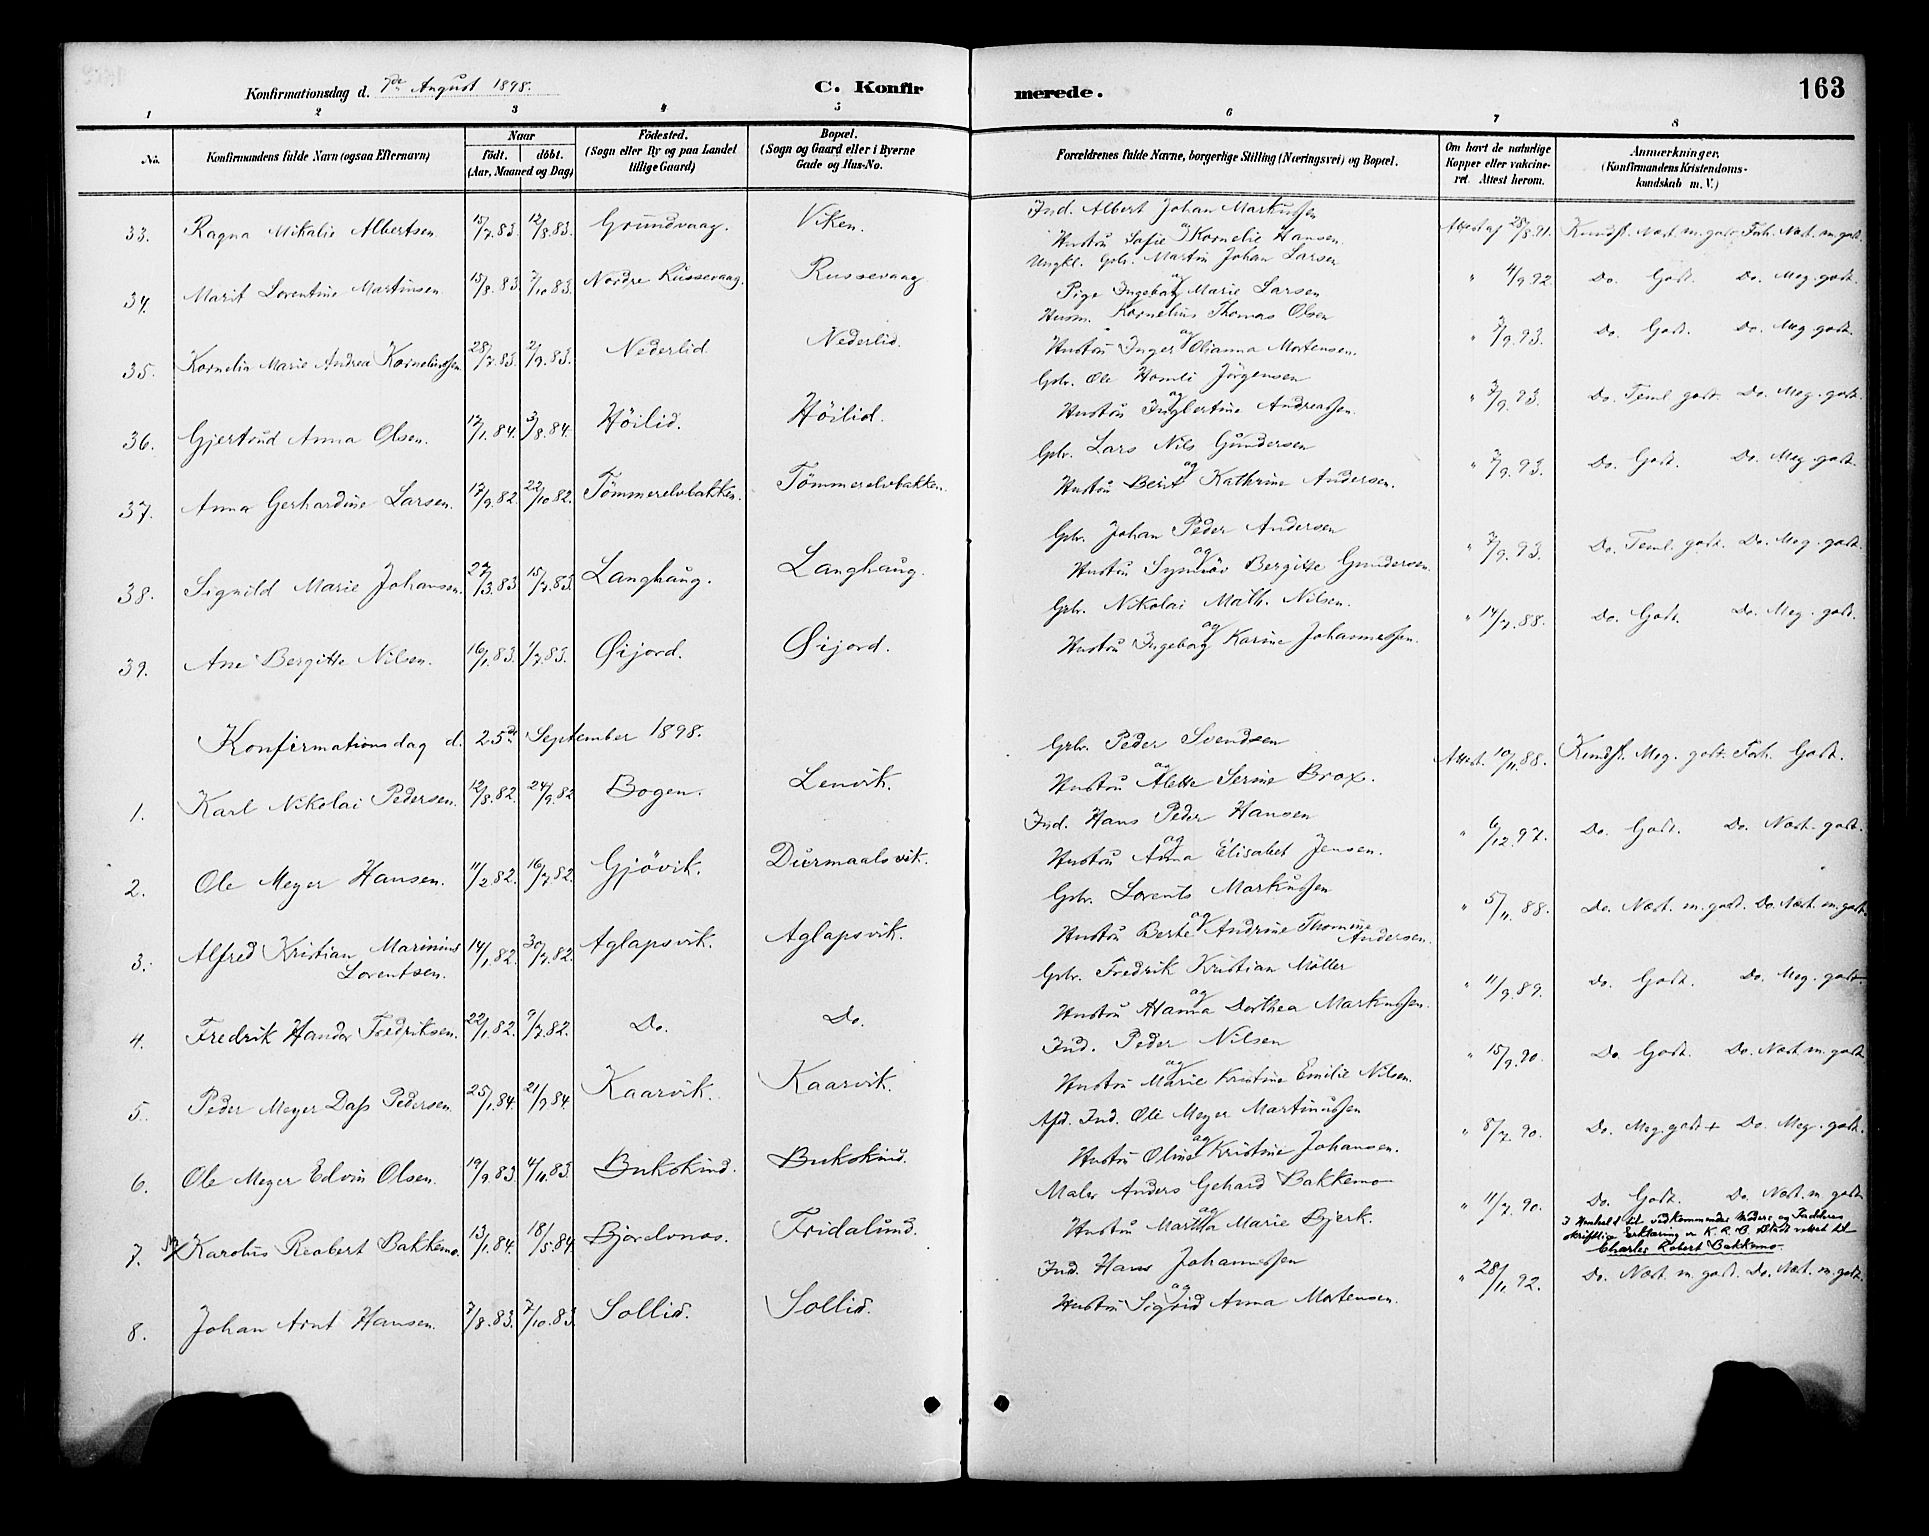 Konfirmationsdag d. 7de August 1898. C. Konfir
merede. 163
1 2 3 4 5 6 7 8
No. Konfirmandens fulde Navn (ogsaa Efternavn) Naar födt. döbt. (Aar, Maaned og Dag) Födested. (Sogn eller By og paa Landet tillige Gaard) Bopæl. (Sogn og Gaard eller i Byerne Gade og Hus-No.
Forældrenes fulde Navne, borgerlige Stilling (Næringsvei) og Bopæl. Om havt de naturlige Kopper eller vakcineret. Attest herom. Anmærkninger. (Konfirmandens Kristendomskundskab m. V.)
33. Ragna Mikalie Albertsen 15/7.83. 12/8.83. Grundvaag. Viken. Ind. Albert Johan Markussen og Hustru Sofie Kornelie Hansen. Attest af 28/8.91. Kundsk. Næst. m. godt. Forh. Næst. m. godt.
34. Marit Lorentine Martinsen 15/8.83. 7/10.83. Nordre Russevaag. Russevaag. Ungkl. Gbr. Martin Johan Larsen og Pige Ingeborg Marie Larsen " 4/9.92. Do. Godt. Do. Meg. godt.
35. Kornelia Marie Andrea Korneliussen 28/7.83. 2/9.83. Nederlid. Nederlid. Husm. Kornelius Thomas Olsen og Hustru Inger Olianna Mortensen. " 3/9.93. Do. Godt. Do. Meg. godt.
36. Gjertrud Anna Olsen. 12/1.84. 3/8.84. Höilid. Höilid. Gbr. Ole Homli Jörgensen og Hustru Inglertine Andreassen. " 3/9.93. Do. Teml. godt. Do. Meg. godt.
37. Anna Gerhardine Larsen. 17/9.82. 22/10.82. Tömmerelvbakken. Tömmerelvbakken. Gbr. Lars Nils Gundersen og Hustru Berit Kathrine Andersen. " 3/9.93. Do. Godt. Do. Meg. godt.
38. Signild Marie Johansen. 27/3.83. 15/7.83. Langhaug. Langhaug. Gbr. Johan Peder Andersen og Hustru Synnöv Bergitte Gundersen. " 3/9.93. Do. Teml. godt. Do. Meg. godt.
39. Ane Bergitte Nilsen. 16/1.83. 1/7.83. Øijord. Øijord. Gbr. Nikolai Math. Nilsen. og Hustru Ingeborg Karine Johannessen. " 14/7.88. Do. Godt. Do. Meg. godt.
Konfirmationsdag d. 25de September 1898.
1. Karl Nikolai Pedersen. 12/8.82. 24/9.82 Bogen. Lenvik. Gbr. Peder Svendsen og Hustru Alette Serine Brox. Attest. 10/11.88. Kundsk. Meg. godt. Forh. Godt.
2. Ole Meyer Hansen. 11/2.82. 16/7.82. Gjövik. Durmaalsvik. Ind. Hans Peder Hansen og Hustru Anna Elisabet Jensen. " 6/12.97. Do. Godt. Do. Næst. godt.
3. Alfred Kristian Marinius Lorentsen. 14/1.82. 30/7.82. Aglapsvik. Aglapsvik. Gbr. Lorents Markussen og Hustru Berte Andrine Thomine Andersen. " 5/11.88. Do. Næst. m. godt. Do. Næst. m. godt.
4. Fredrik Handor Fredriksen. 22/1.82. 9/7.82. Do. Do. Gbr. Fredrik Kristian Möller og Hustru Hanna Dorthea Markussen. " 11/9.89. Do. Godt. Do. Meg. godt
5. Peder Meyer Dass Pedersen. 25/1.84. 21/9.84. Kaarvik. Kaarvik. Ind. Peder Nilsen og Hustru Marie Kristine Emilie Nilsen. " 15/9.90. Do. Godt. Do. Næst m. godt.
6. Ole Meyer Edvin Olsen. 19/9.83. 4/11.83. Bukskind. Bukskind. Afd. Ind. Ole Meyer Martinussen og Hustru Oline Kristine Johansen. " 8/7.90. Do. Meg. godt + Do. Meg. godt.
7. Karolus Reobert Bakkemo. 13/1.84. 18/5.84. Bjorelvnes. Fridalund. Maler Anders Gehard Bakkemo og Hustru Martha Marie Bjerk. " 11/7.90. Do. Godt. Do. Næst. m. godt.
I Henhold til vedkommendes Moders og Fadderes
skriftlige Erklæring er K. R. B. rettet til
Charles Robert Bakkemo.
8. Johan Arnt Hansen. 7/8.83. 7/10.83. Sollid. Sollid. Ind. Hans Johannessen og Hustru Sigrid Anna Mortensen. " 28/11.92. Do. Næst. m. godt. Do. Næst. m. godt.